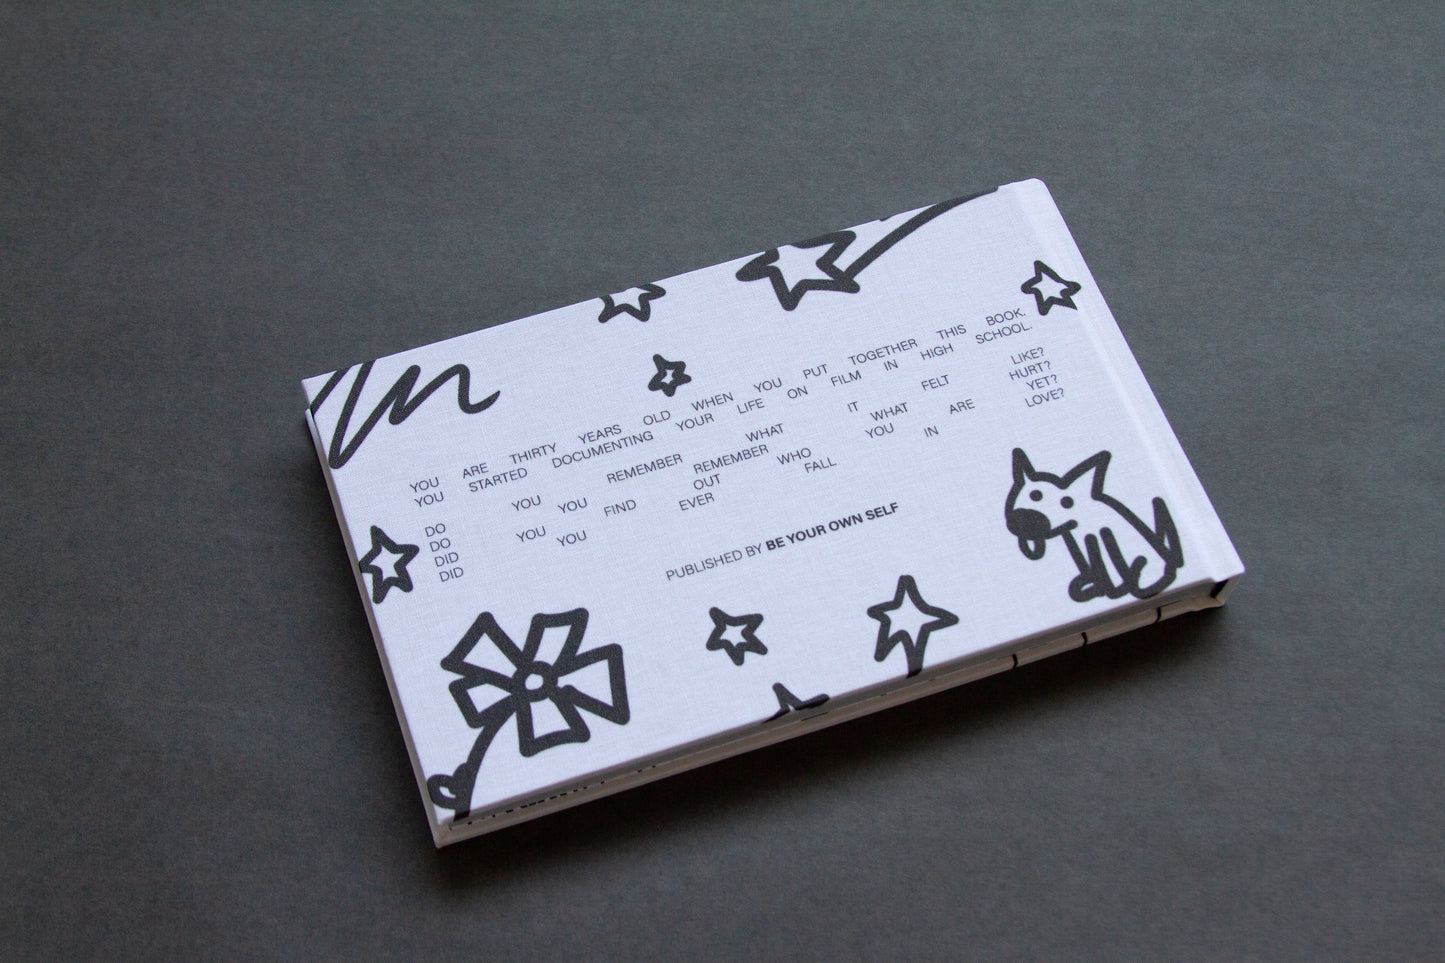 YOU ARE THIRTY YEARS OLD WHEN YOU PUT TOGETHER THIS BOOK.
YOU STARTED DOCUMENTING YOUR LIFE ON FILM IN HIGH SCHOOL.
DO YOU REMEMBER WHAT IT FELT LIKE?
DO YOU REMEMBER WHAT HURT?
DID YOU FIND OUT WHO YOU ARE YET?
DID YOU EVER FALL IN LOVE?
PUBLISHED BY BE YOUR OWN SELF